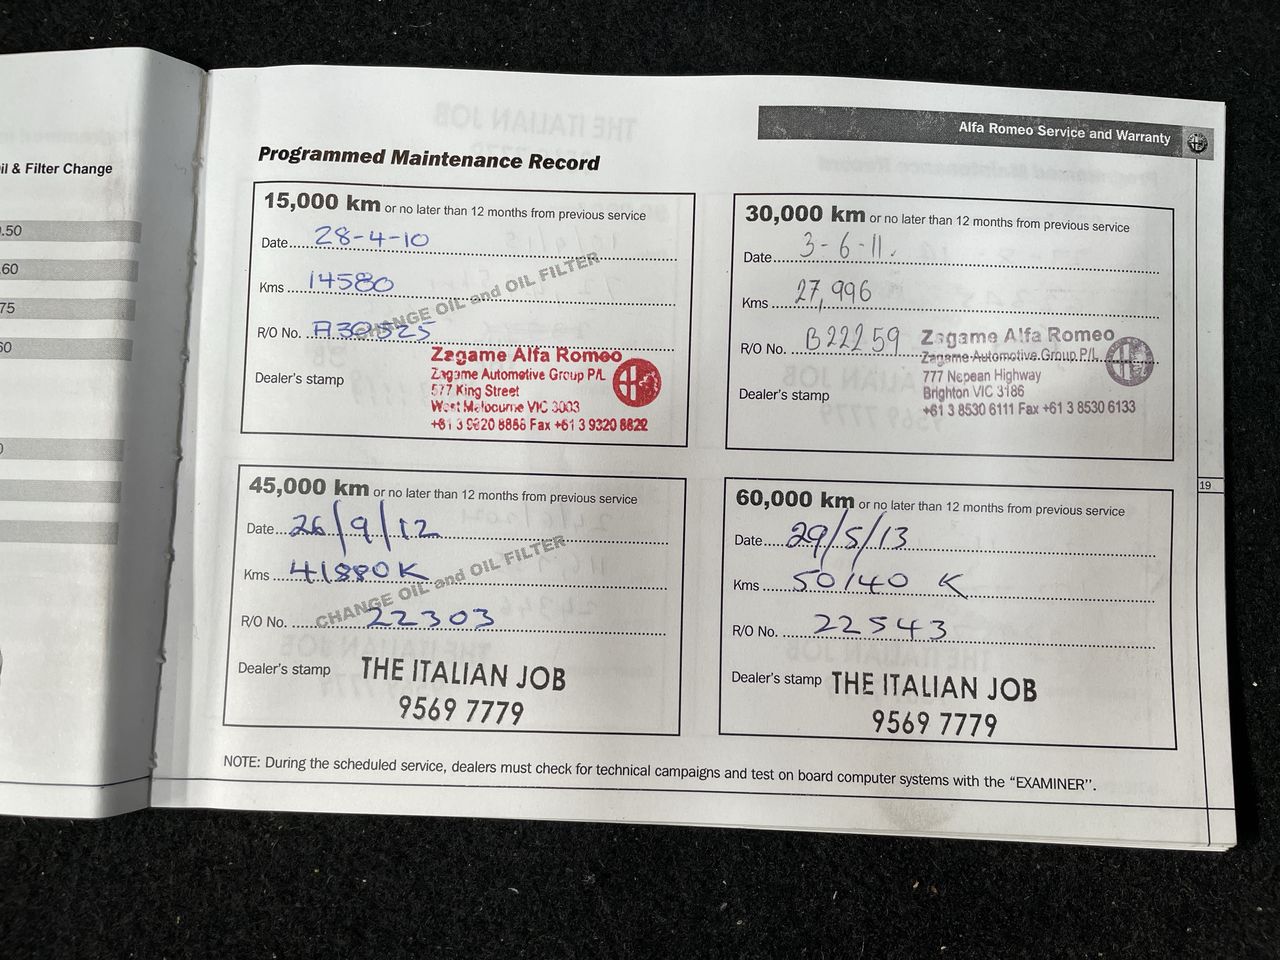 il & Filter Change
.50
60
75
60
0
Alfa Romeo Service and Warranty
Programmed Maintenance Record
15,000 km or no later than 12 months from previous service
Date 28-4-10
Kms 14580
CHANGE OIL and OIL FILTER
R/O No. A30525
Dealer's stamp
Zagame Alfa Romeo
Zagame Automotive Group P/L
577 King Street
West Melbourne VIC 3003
+61 3 9320 8888 Fax +61 3 9320 8822
30,000 km or no later than 12 months from previous service
Date 3-6-11.
Kms 27,996
R/O No. B22259
Dealer's stamp
Zagame Alfa Romeo
Zagame Automotive Group P/L
777 Nepean Highway
Brighton VIC 3186
+61 3 8530 6111 Fax +61 3 8530 6133
45,000 km or no later than 12 months from previous service
Date 26/9/12
Kms 41880K
CHANGE OIL and OIL FILTER
R/O No. 22303
Dealer's stamp THE ITALIAN JOB
9569 7779
60,000 km or no later than 12 months from previous service
Date 29/5/13
Kms 50140 K
R/O No. 22543
Dealer's stamp THE ITALIAN JOB
9569 7779
19
NOTE: During the scheduled service, dealers must check for technical campaigns and test on board computer systems with the “EXAMINER”.